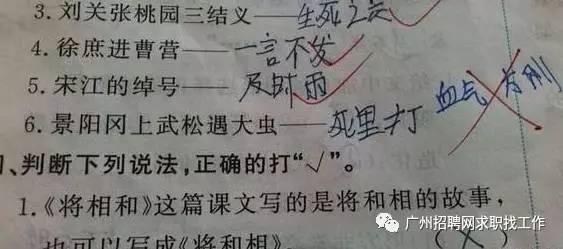 3.刘关张桃园三结义——生死之交
4.徐庶进曹营——一言不发
5.宋江的绰号——及时雨
6.景阳冈上武松遇大虫——死里打 血气方刚
、判断下列说法,正确的打“√”。
1.《将相和》这篇课文写的是将和相的故事,
也可以写成《将和相》。 (×)
广州招聘网求职找工作